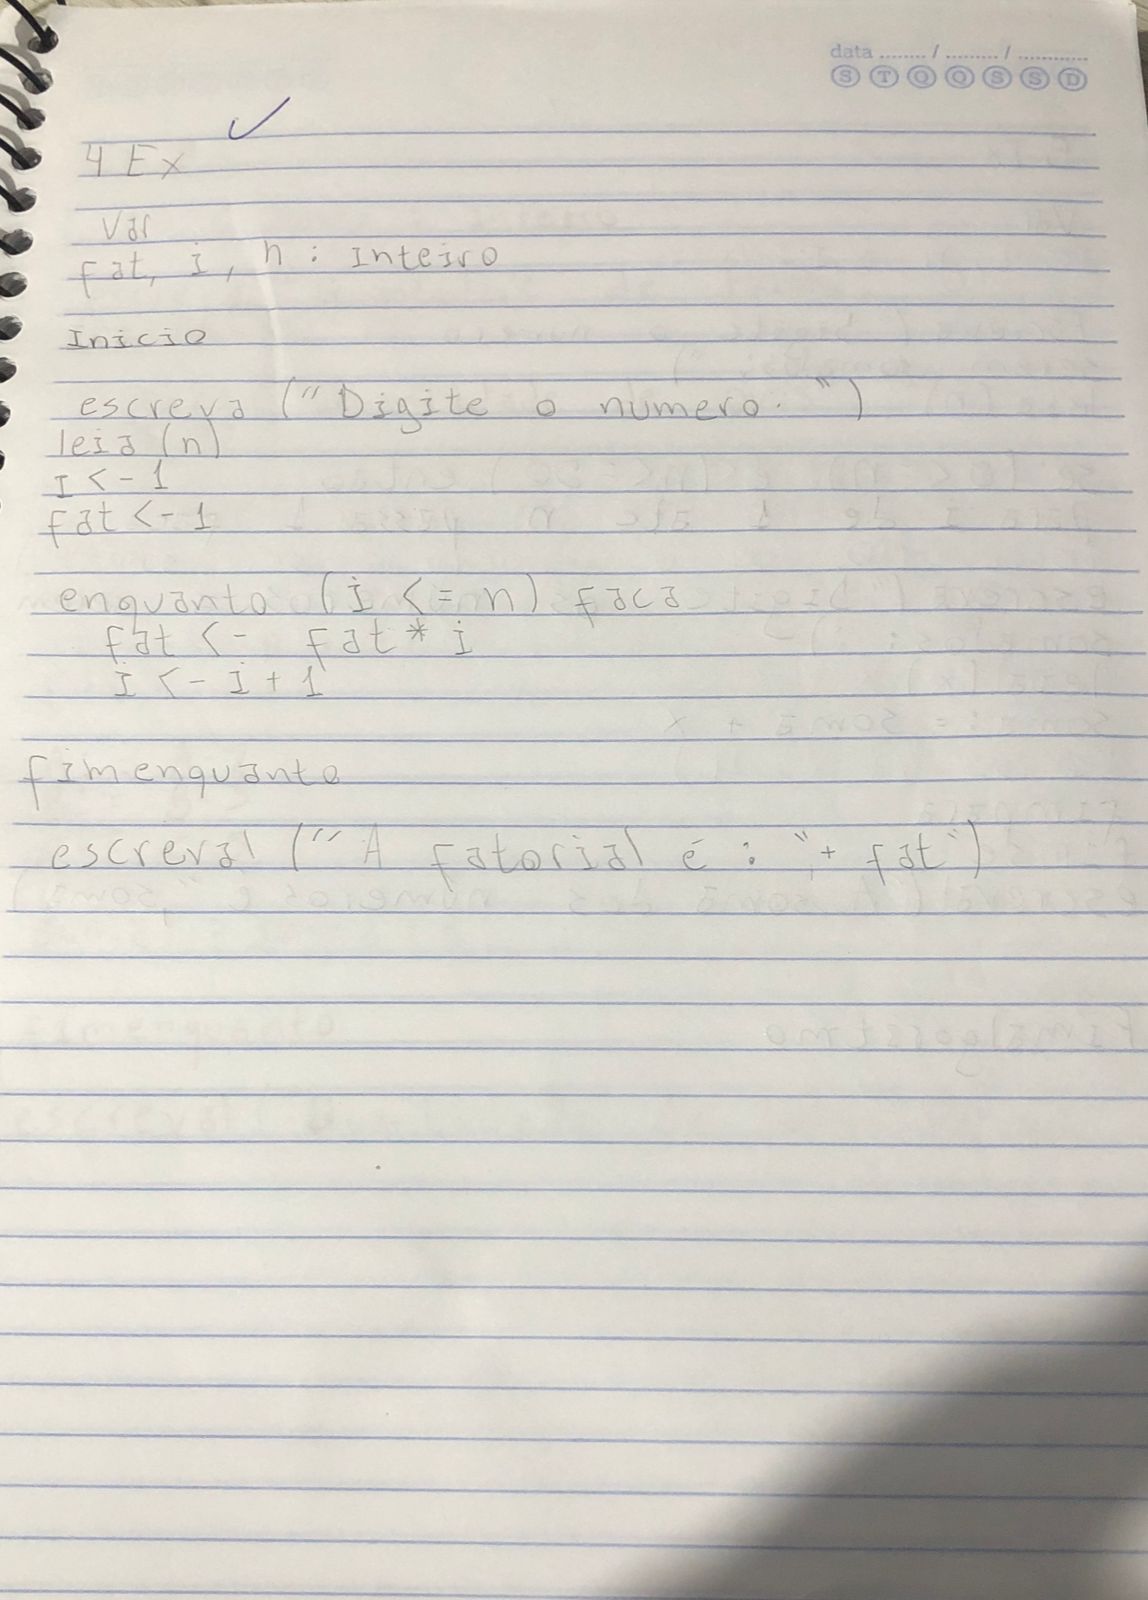 data ......../......../............
S T Q Q S S D
4 Ex
Var
fat, i, n : Inteiro
Inicio
escreva ("Digite o numero. ")
leia (n)
I <- 1
fat <- 1
enquanto (i <= n) faca
fat <- fat * i
i <- i + 1
fimenquanto
escreval ("A fatorial é : "+ fat")